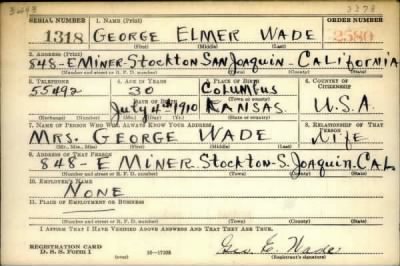 3443 3278
SERIAL NUMBER 1. NAME (Print) ORDER NUMBER
1318 GEORGE ELMER WADE 2580
(First) (Middle) (Last)
2. ADDRESS (Print)
848-E MINER-STOCKTON SAN JOAQUIN-CALIFORNIA
(Number and street or R. F. D. number) (Town) (County) (State)
3. TELEPHONE 4. AGE IN YEARS 5. PLACE OF BIRTH 6. COUNTRY OF CITIZENSHIP
55492 30 COLUMBUS
DATE OF BIRTH (Town or county)
JULY 4th 1910 KANSAS U.S.A.
(Exchange) (Number) (Mo.) (Day) (Yr.) (State or country)
7. NAME OF PERSON WHO WILL ALWAYS KNOW YOUR ADDRESS 8. RELATIONSHIP OF THAT PERSON
MRS. GEORGE WADE WIFE
(Mr., Mrs., Miss) (First) (Middle) (Last)
9. ADDRESS OF THAT PERSON
848-E MINER-STOCKTON-S. JOAQUIN. CAL.
(Number and street or R. F. D. number) (Town) (County) (State)
10. EMPLOYER'S NAME
NONE
11. PLACE OF EMPLOYMENT OR BUSINESS
(Number and street or R. F. D. number) (Town) (County) (State)
I AFFIRM THAT I HAVE VERIFIED ABOVE ANSWERS AND THAT THEY ARE TRUE.
REGISTRATION CARD
D. S. S. Form 1 Geo E. Wade
(Registrant's signature)